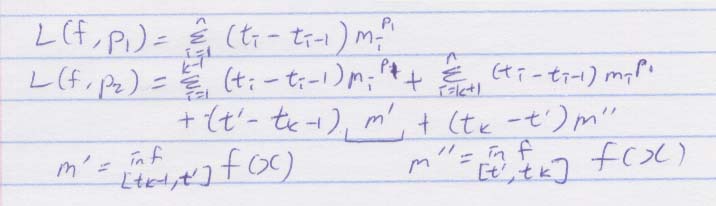 L(f, p₁) = ⁿΣᵢ₌₁ (tᵢ - tᵢ₋₁) mᵢᵖ¹
L(f, p₂) = ᵏ⁻¹Σᵢ₌₁ (tᵢ - tᵢ₋₁) mᵢᵖ¹ + ⁿΣᵢ₌ₖ₊₁ (tᵢ - tᵢ₋₁) mᵢᵖ¹
+ (t' - tₖ₋₁) m' + (tₖ - t') m''
m' = inf [tₖ₋₁, t'] f(x) m'' = inf [t', tₖ] f(x)